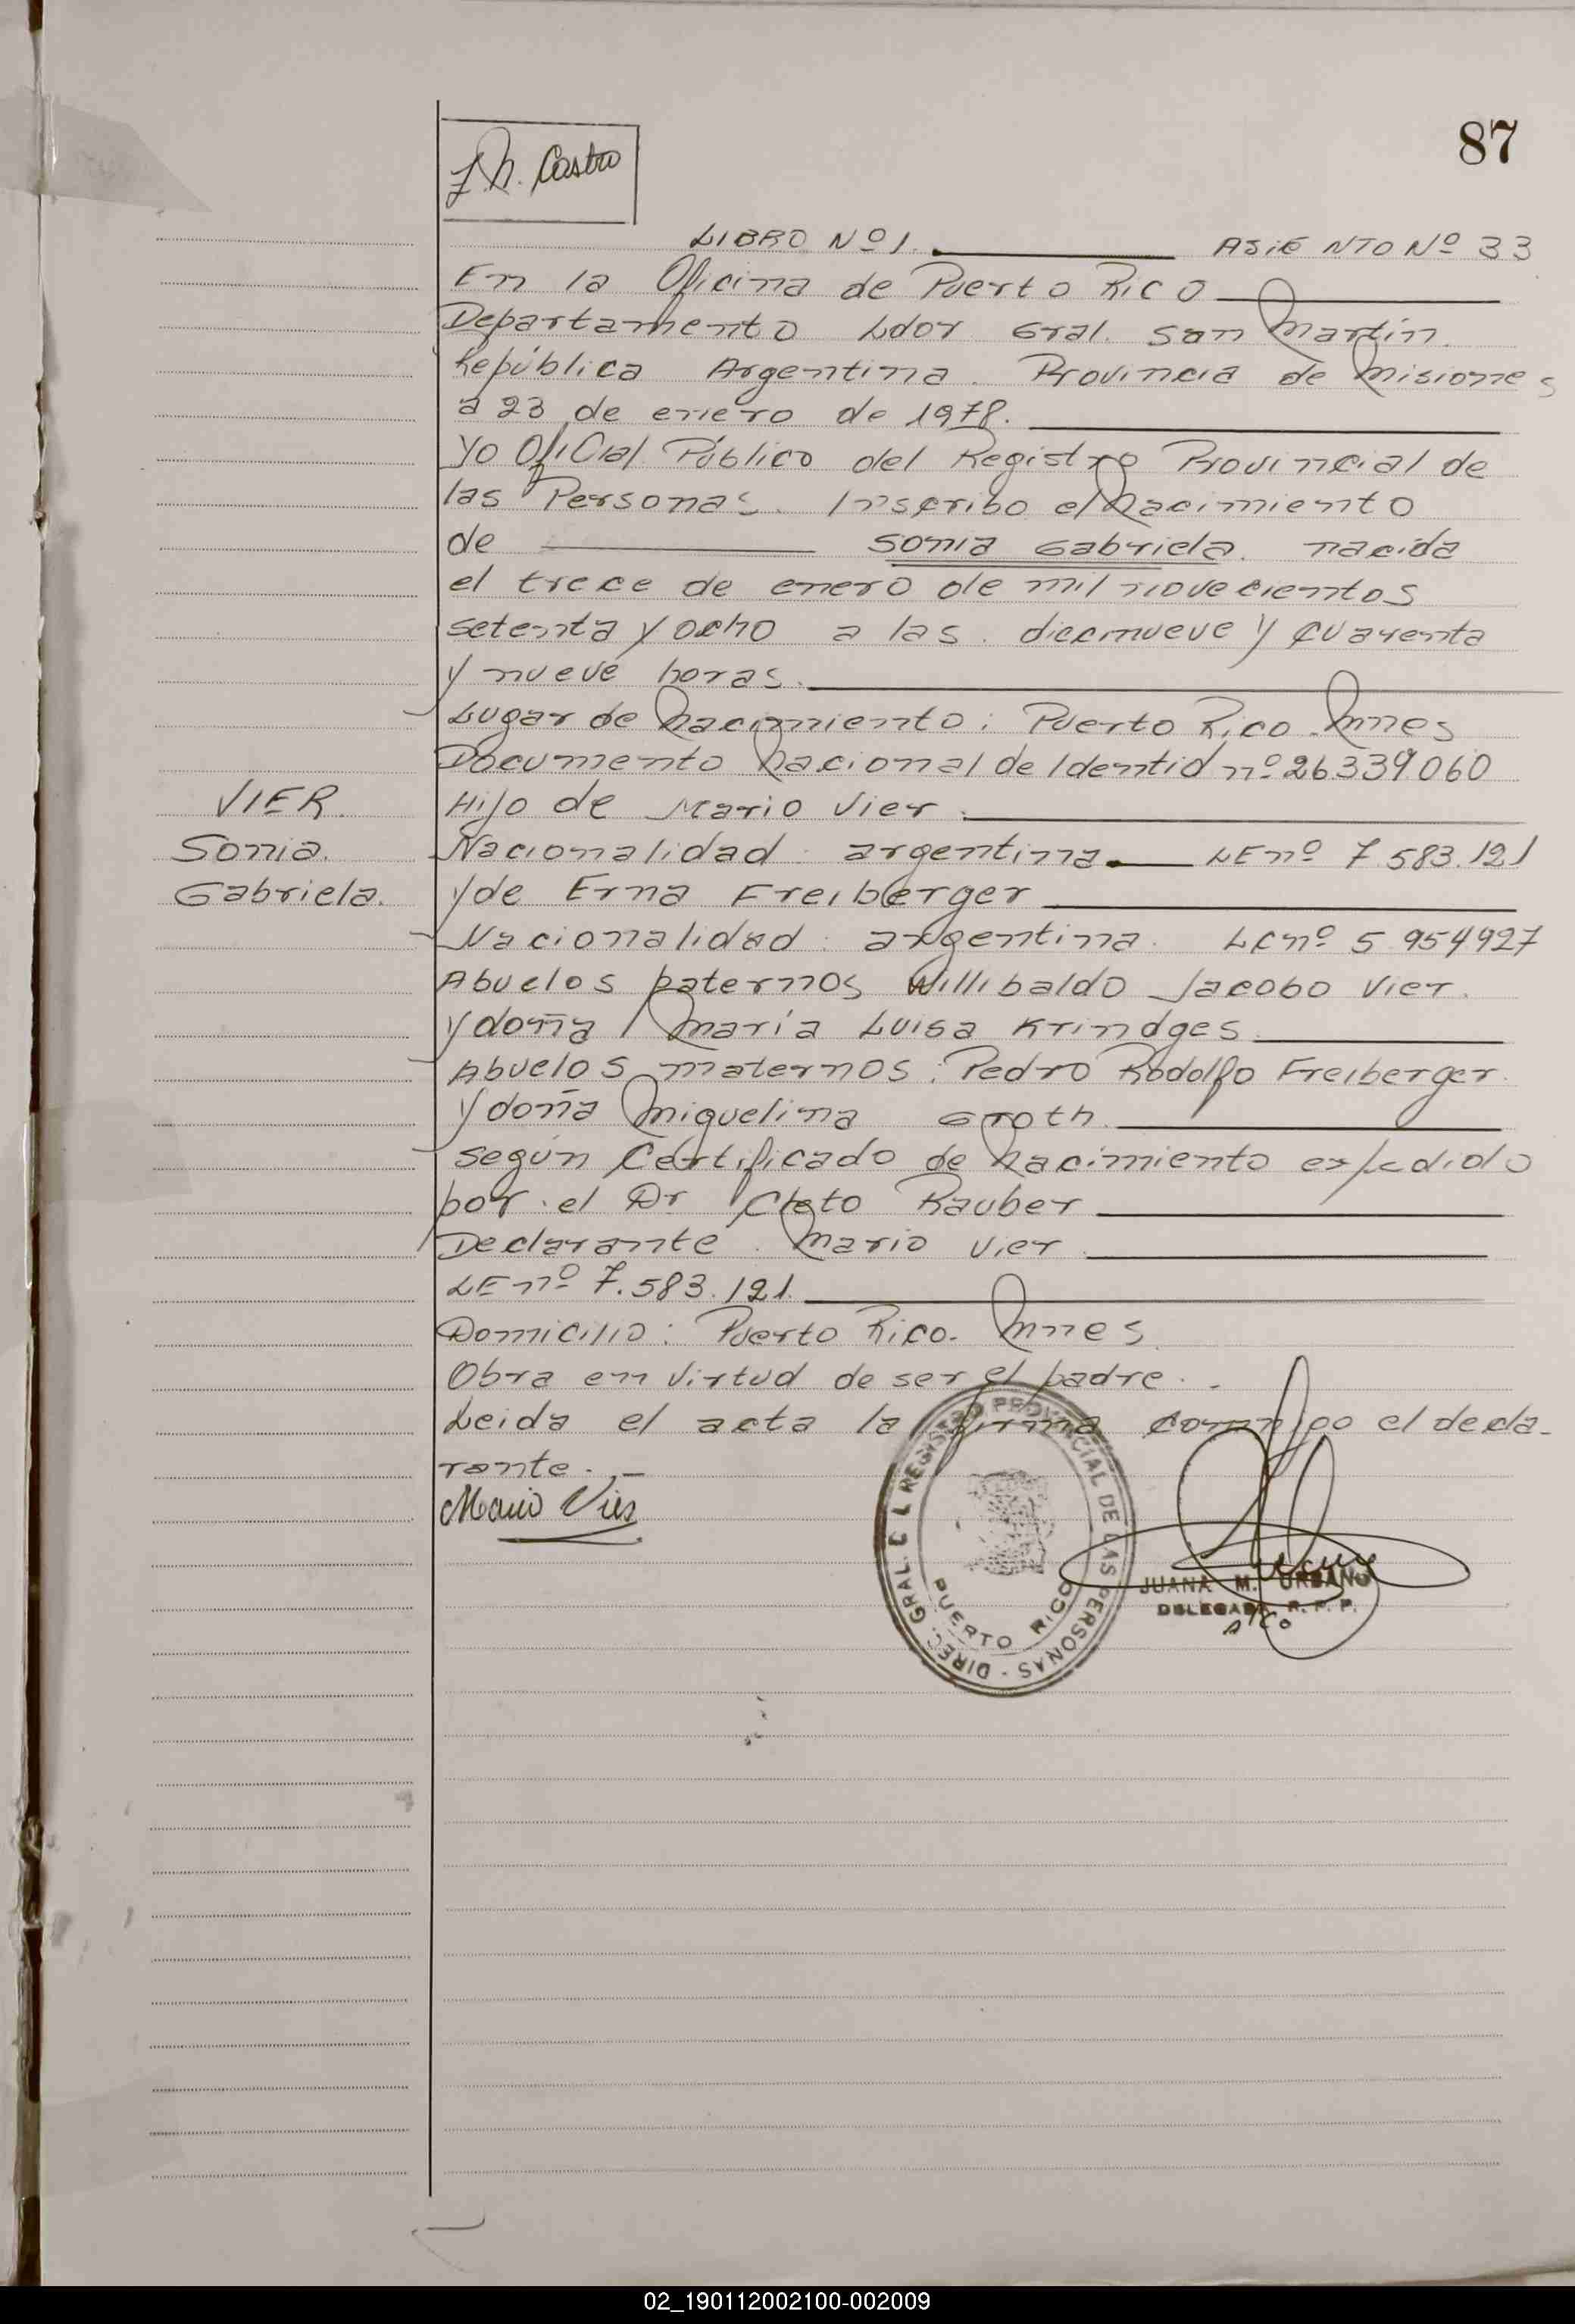 87
J. N. Castro
LIBRO Nº 1. ASIENTO Nº 33
En la Oficina de Puerto Rico
Departamento Ldor Gral. San Martín.
República Argentina. Provincia de Misiones
a 23 de enero de 1978.
Yo Oficial Público del Registro Provincial de
las Personas. Inscribo el Nacimiento
de Sonia Gabriela. nacida
el trece de enero de mil novecientos
setenta y ocho a las. diecinueve y cuarenta
y nueve horas.
Lugar de Nacimiento: Puerto Rico. Mnes
Documento Nacional de Identid nº 26.339.060
VIER.
Sonia.
Gabriela.
Hijo de Mario Vier.
Nacionalidad argentina. LE nº 7.583.121
y de Erna Freiberger
Nacionalidad: argentina. LC nº 5.954927
Abuelos paternos Willibaldo Jacobo Vier.
y doña María Luisa Krindges.
Abuelos maternos: Pedro Rodolfo Freiberger.
y doña Miguelina Groth.
según Certificado de Nacimiento expedido
por el Dr Cleto Rauber
Declarante. Mario Vier.
LE nº 7.583.121.
Domicilio: Puerto Rico. Mnes.
Obra en virtud de ser el padre.
Leida el acta la firma conmigo el decla-
rante.
Mario Vier
DIREC. GRAL. DEL REGISTRO PROVINCIAL DE LAS PERSONAS -
PUERTO RICO
JUANA M. URBANO
DELEGADA R. P. P.
02_190112002100-002009